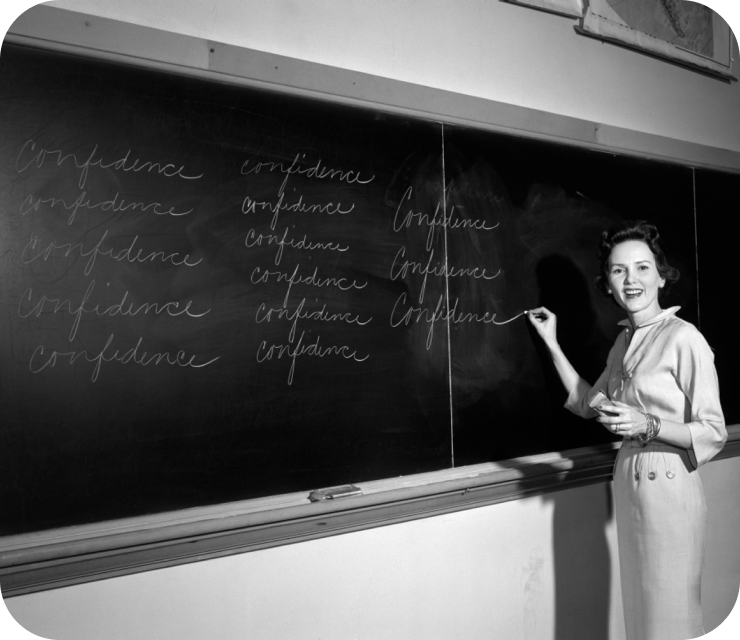 Confidence
Confidence
Confidence
Confidence
Confidence
confidence
confidence
confidence
confidence
confidence
confidence
Confidence
Confidence
Confidence